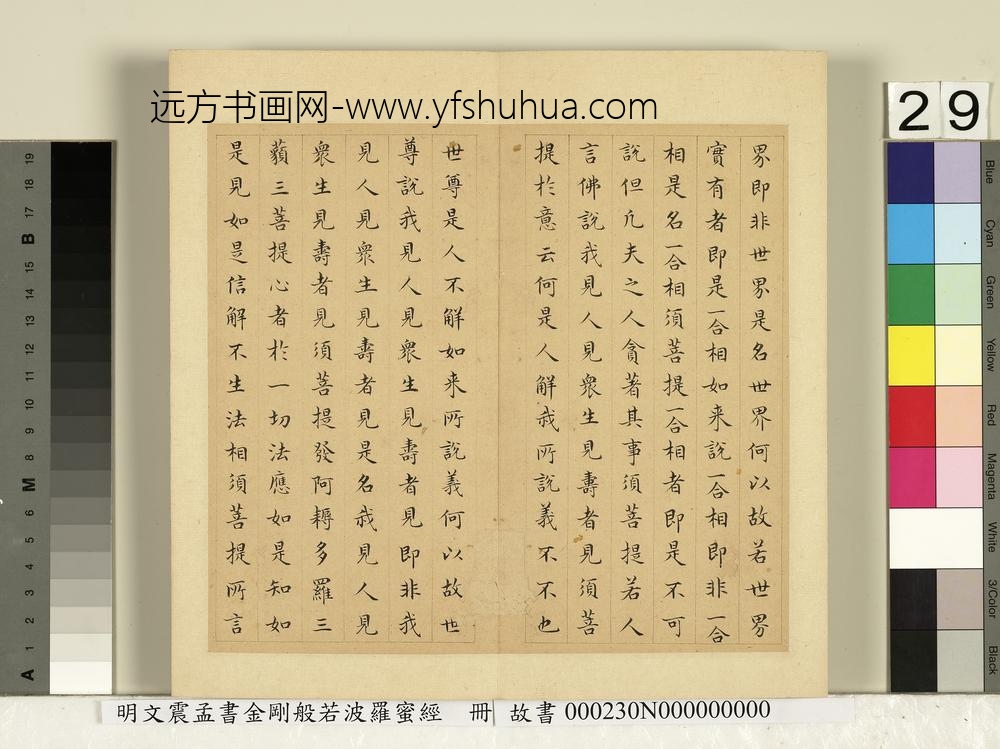 远方书画网-www.yfshuhua.com
29
界即非世界是名世界何以故若世界
實有者即是一合相如来說一合相即非一合
相是名一合相須菩提一合相者即是不可
說但凡夫之人貪著其事須菩提若人
言佛說我見人見衆生見壽者見須菩
提於意云何是人解我所說義不不也
世尊是人不解如来所說義何以故世
尊說我見人見衆生見壽者見即非我
見人見衆生見壽者見是名我見人見
衆生見壽者見須菩提發阿耨多羅三
藐三菩提心者於一切法應如是知如
是見如是信解不生法相須菩提所言
19
18
17
B
15
14
13
12
11
10
9
8
M
6
5
4
3
2
1
A
Blue
Cyan
Green
Yellow
Red
Magenta
White
3/Color
Black
明文震孟書金剛般若波羅蜜經 冊 故書 000230N000000000